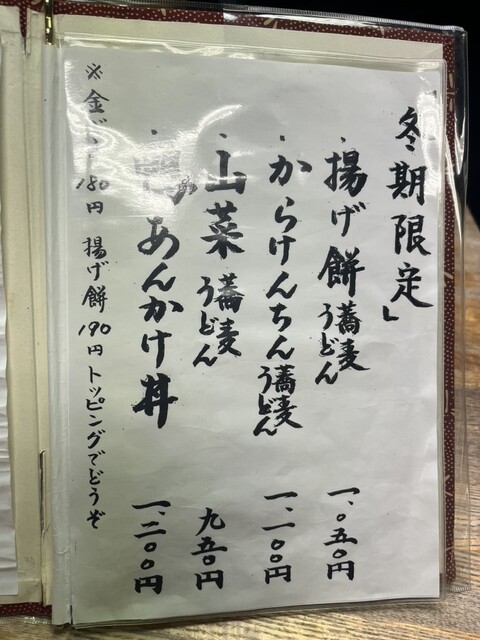 「冬期限定」
・揚げ餅 蕎麦 うどん 一、〇五〇円
・からけんちん 蕎麦 うどん 一、一〇〇円
・山菜 蕎麦 うどん 九五〇円
・あんかけ丼 一、二〇〇円
※金 180円 揚げ餅 190円 トッピングでどうぞ